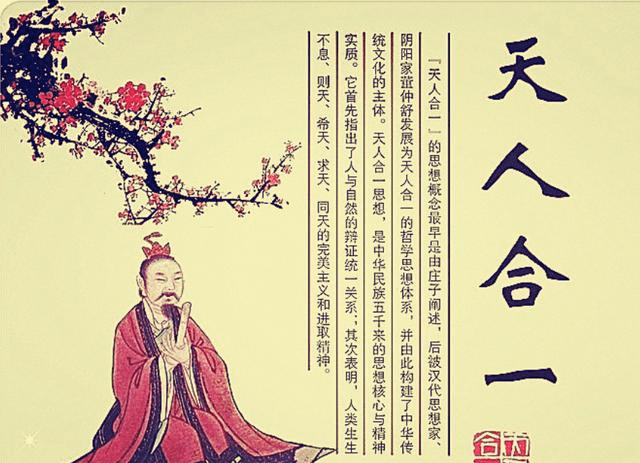 天人合一
『天人合一』的思想概念最早是由庄子阐述，后被汉代思想家、
阴阳家董仲舒发展为天人合一的哲学思想体系，并由此构建了中华传
统文化的主体。天人合一思想，是中华民族五千来的思想核心与精神
实质。它首先指出了人与自然的辩证统一关系；其次表明，人类生生
不息、则天、希天、求天、同天的完美主义和进取精神。